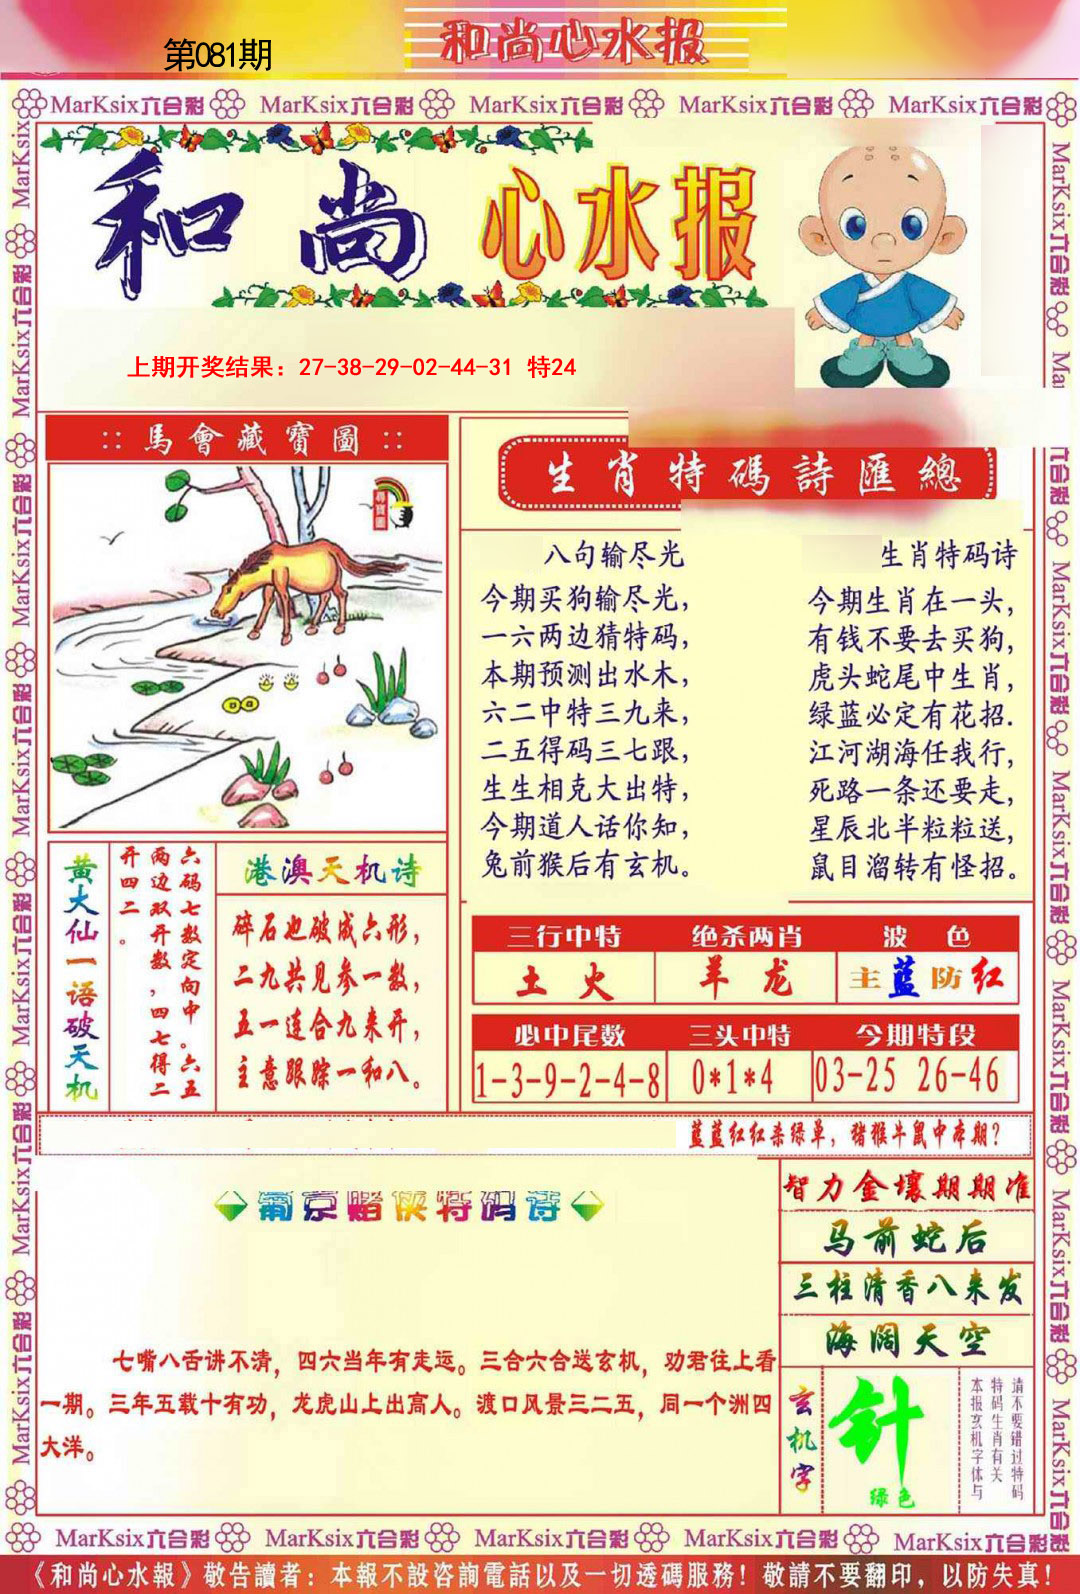 第081期
和尚心水报
MarKsix六合彩 MarKsix六合彩 MarKsix六合彩 MarKsix六合彩 MarKsix六合彩
和尚 心水报
上期开奖结果：27-38-29-02-44-31 特24
馬會藏寶圖
生肖特碼詩匯總
八句输尽光
今期买狗输尽光，
一六两边猜特码，
本期预测出水木，
六二中特三九来，
二五得码三七跟，
生生相克大出特，
今期道人话你知，
兔前猴后有玄机。
生肖特码诗
今期生肖在一头，
有钱不要去买狗，
虎头蛇尾中生肖，
绿蓝必定有花招.
江河湖海任我行，
死路一条还要走，
星辰北半粒粒送，
鼠目溜转有怪招。
黄大仙一语破天机
六码七数定向中。六五
两边双开数，四七得二
开四二。
港澳天机诗
碎石也破成六形，
二九共见参一数，
五一连合九来开，
主意跟踪一和八。
三行中特 绝杀两肖 波色
土火 羊龙 主蓝防红
必中尾数 三头中特 今期特段
1-3-9-2-4-8 0*1*4 03-25 26-46
蓝蓝红红杀绿单，猪猴牛鼠中本期？
葡京赌侠特码诗
七嘴八舌讲不清，四六当年有走运。三合六合送玄机，劝君往上看
一期。三年五载十有功，龙虎山上出高人。渡口风景三二五，同一个洲四
大洋。
智力金壤期期准
马前蛇后
三柱清香八来发
海阔天空
玄机字
针
绿色
请不要错过特码
特码生肖有关
本报玄机字体与
MarKsix六合彩 MarKsix六合彩 MarKsix六合彩 MarKsix六合彩 MarKsix六合彩
《和尚心水報》敬告讀者：本報不設咨詢電話以及一切透碼服務！敬請不要翻印，以防失真！